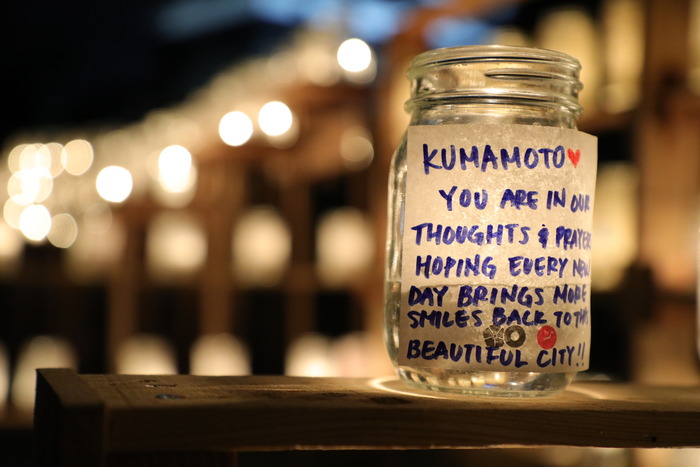 KUMAMOTO♥
YOU ARE IN OUR
THOUGHTS & PRAYE
HOPING EVERY NEW
DAY BRINGS MORE
SMILES BACK TO TH
BEAUTIFUL CITY!!